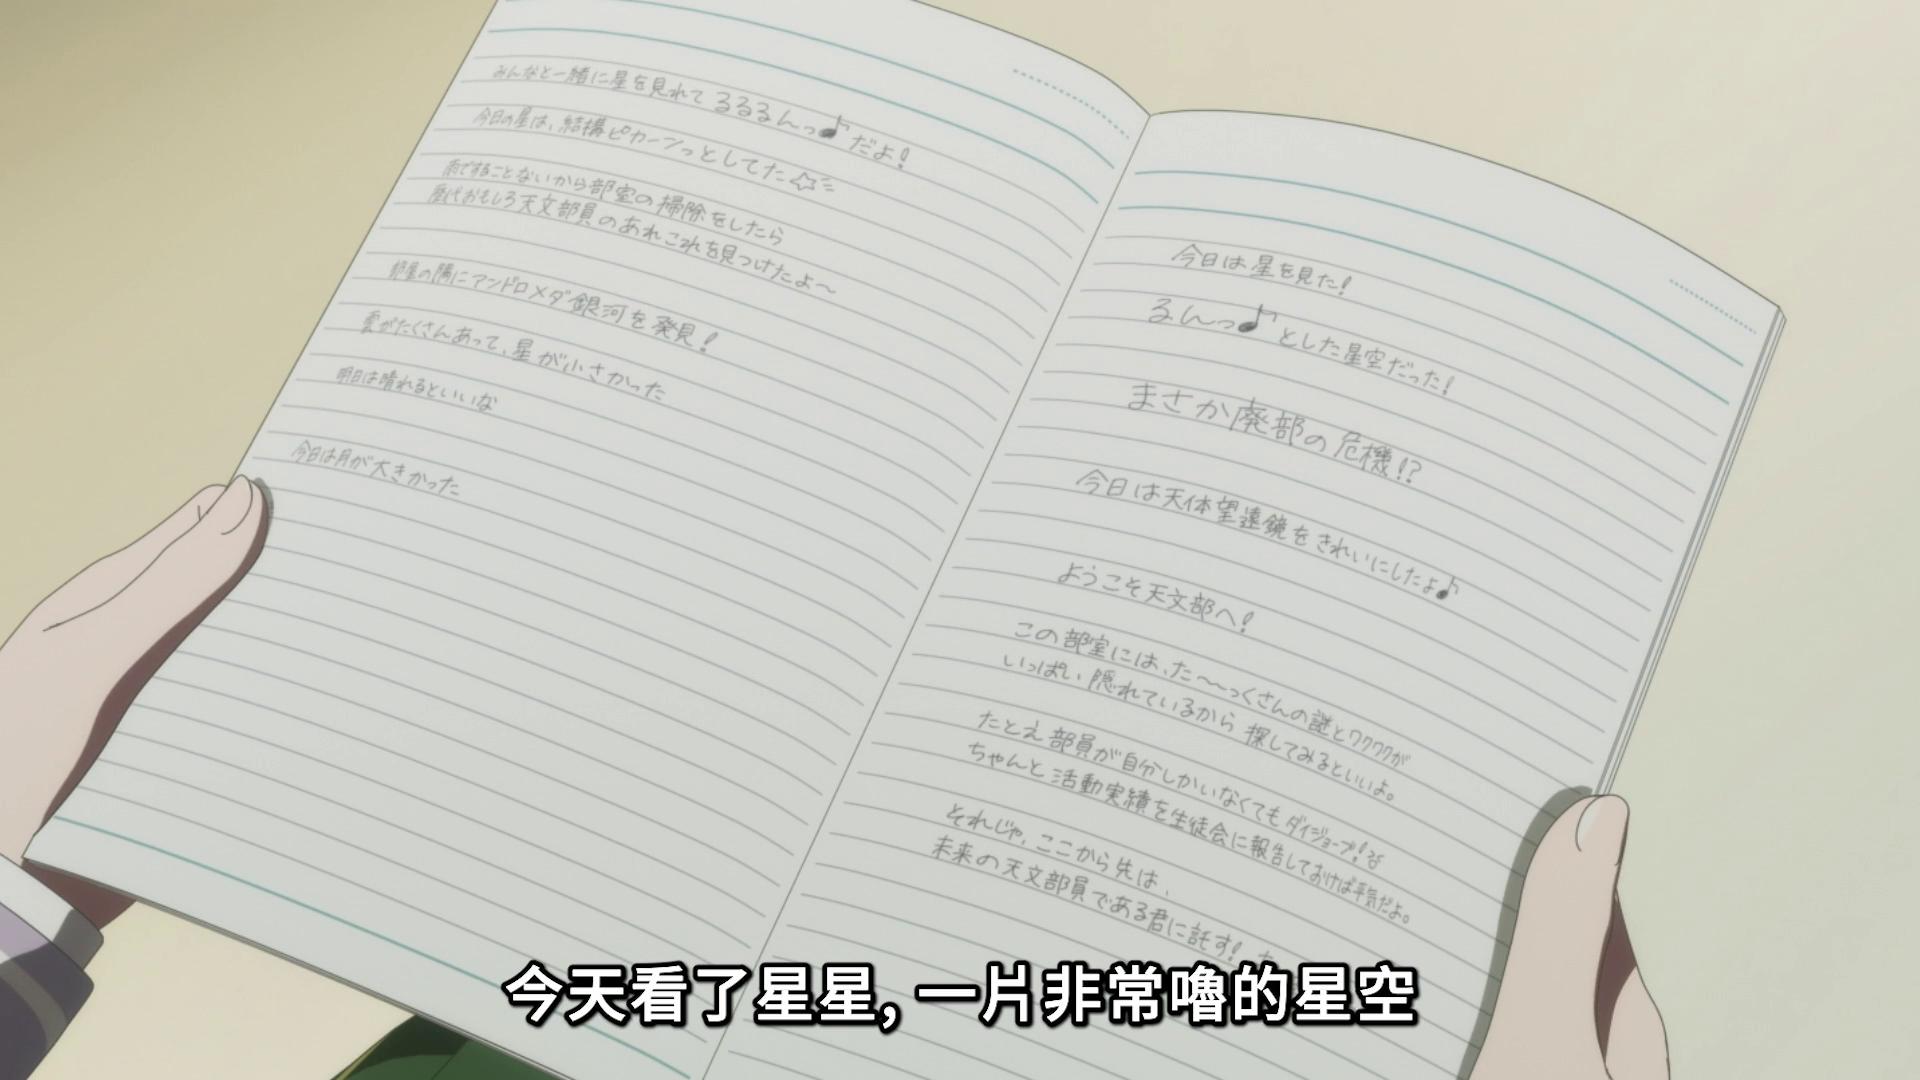 みんなと一緒に星を見れてるるるんっ♪だよ!
今日の星は、結構ピカーンっとしてた☆
雨ですることないから部室の掃除をしたら
歴代おもしろ天文部員のあれこれを見つけたよ～
部屋の隅にアンドロメダ銀河を発見!
雲がたくさんあって、星が小さかった
明日は晴れるといいな
今日は月が大きかった
今日は星を見た!
るんっ♪とした星空だった!
まさか廃部の危機!?
今日は天体望遠鏡をきれいにしたよ♪
ようこそ天文部へ!
この部室には、た～～っくさんの謎とワクワクが
いっぱい隠れているから探してみるといいよ。
たとえ部員が自分しかいなくてもダイジョーブ!
ちゃんと活動実績を生徒会に報告しておけば平気だよ。
それじゃ、ここから先は、
未来の天文部員である君に託す!
今天看了星星，一片非常嚕的星空